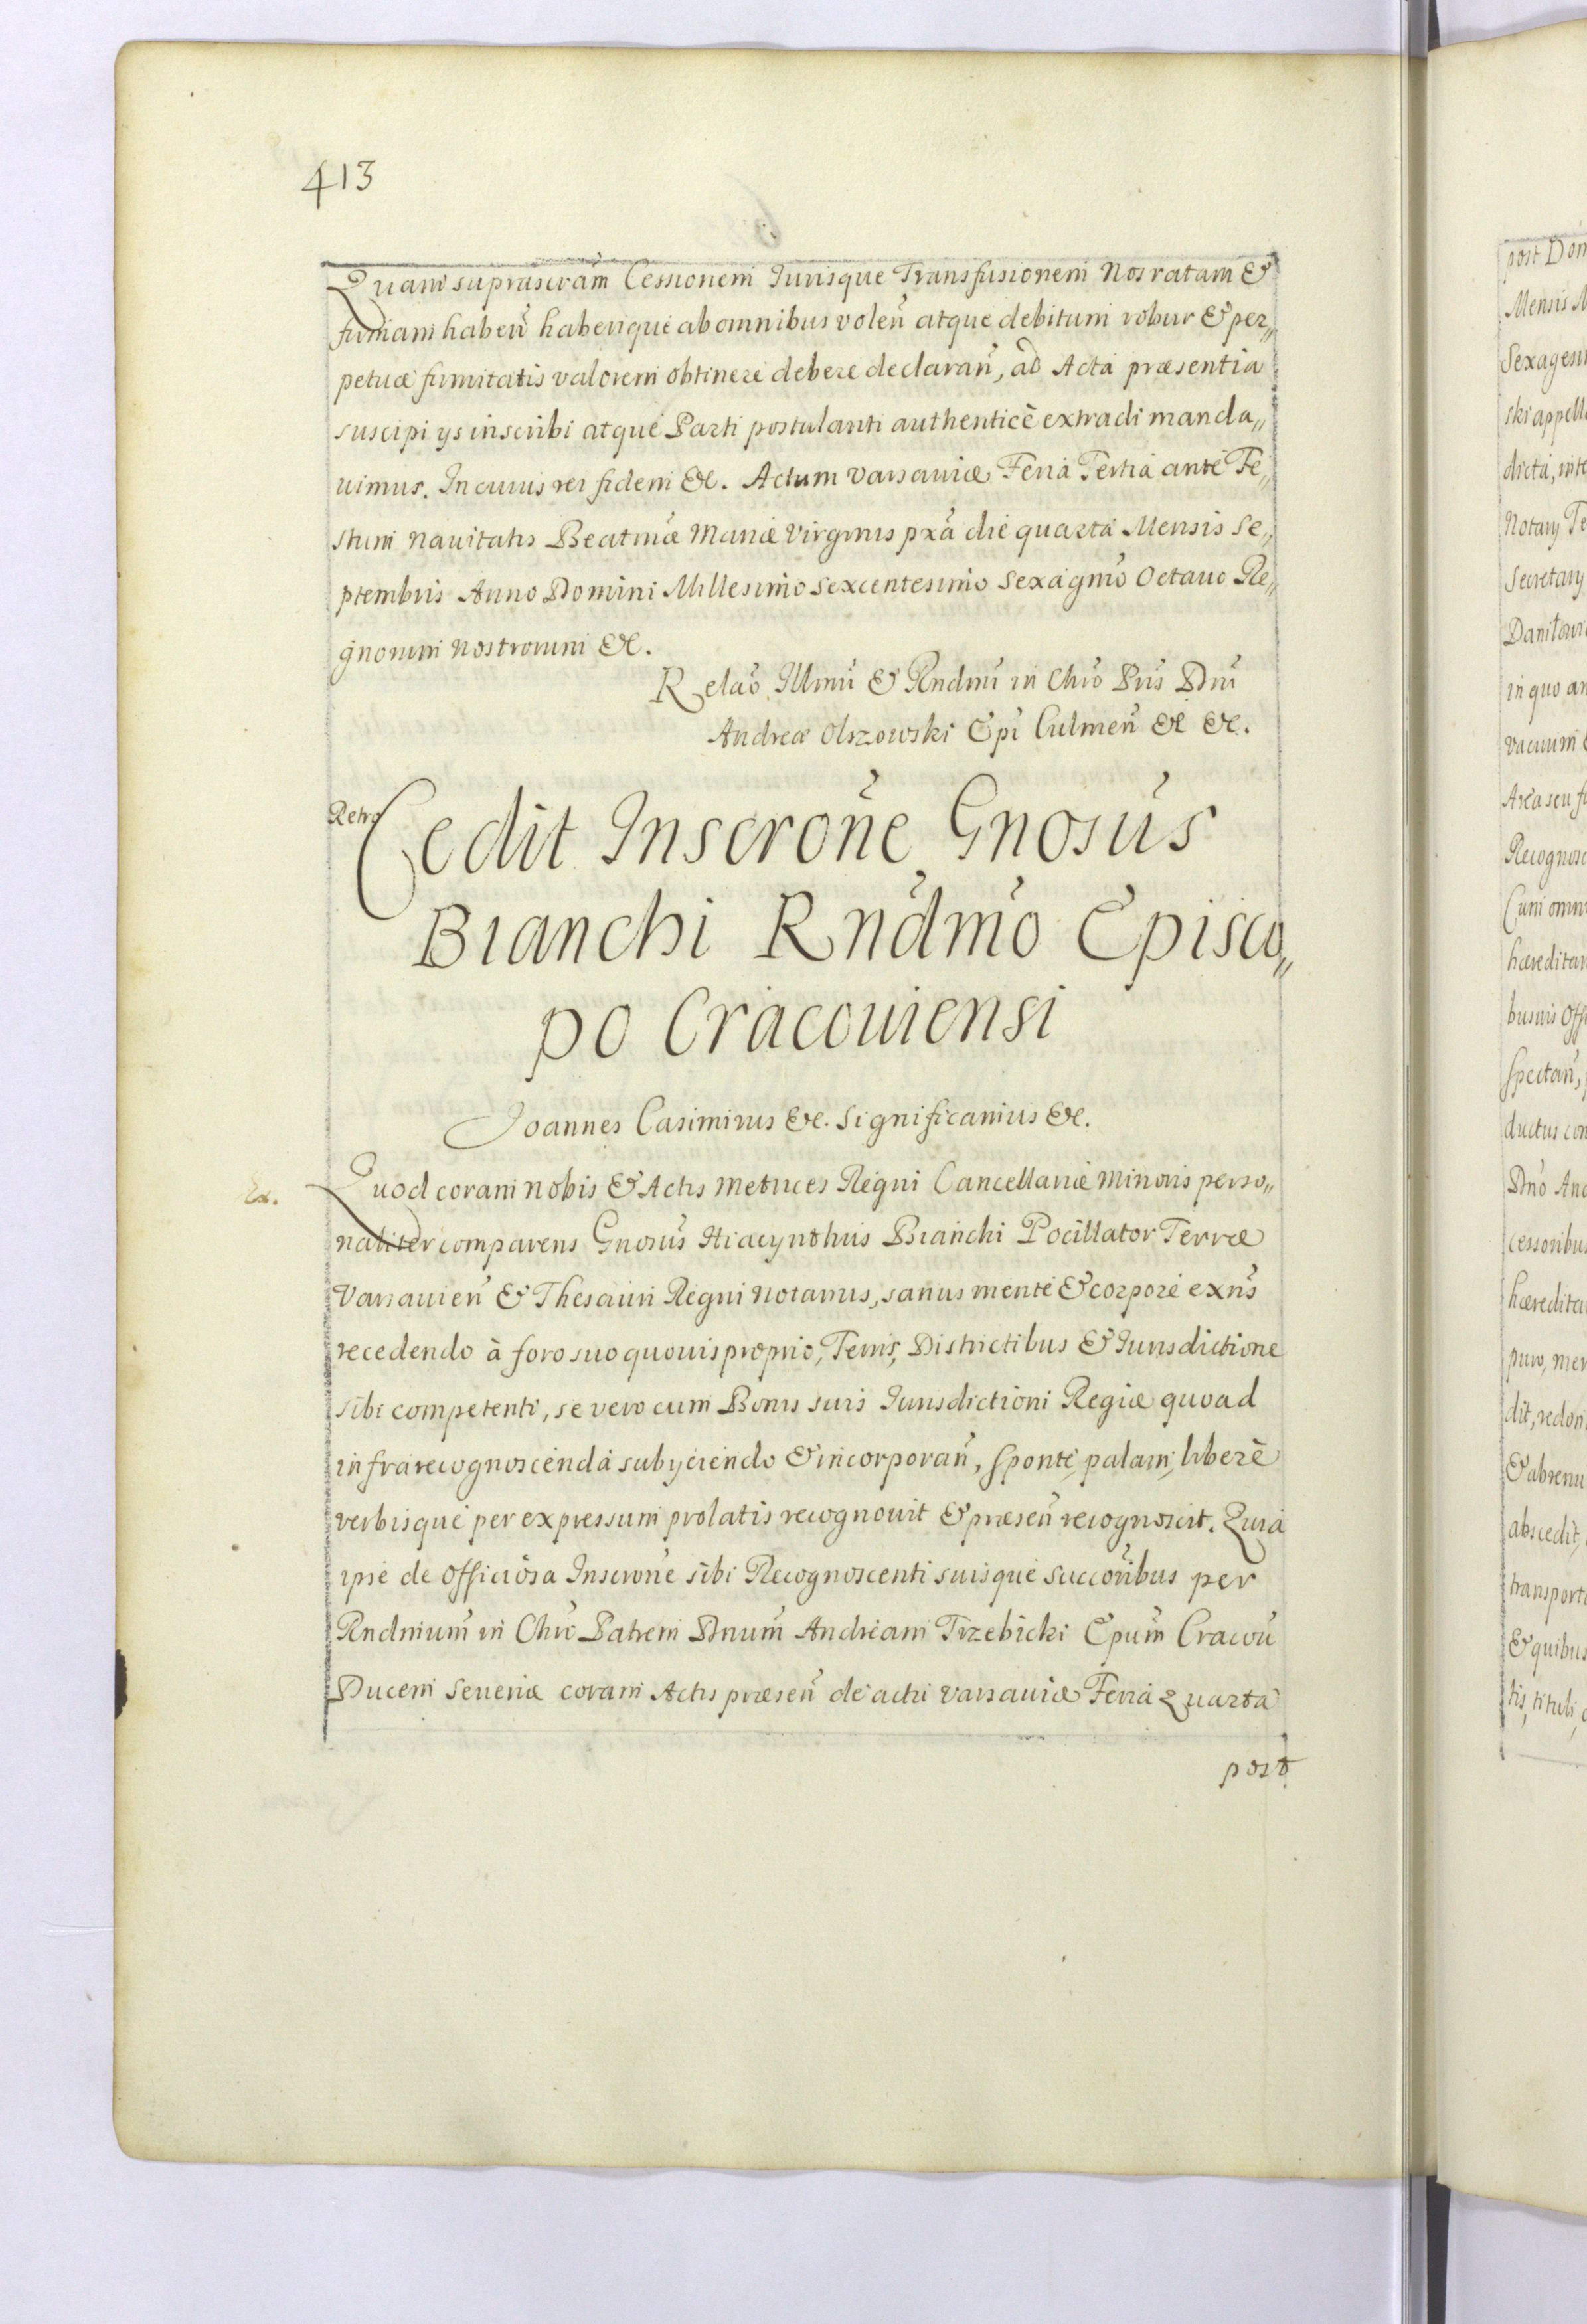 413
Quam suprascrām Cessionem Iurisque Transfusionem Nos ratam &
firmam habeñ haberique ab omnibus voleñ atque debitum robur & per„
petuæ firmitatis valorem obtinere debere declarañ, ad Acta præsentia
suscipi ijs inscribi atque Parti postulanti authenticè extradi manda„
uimus. In cuius rei fidem &c. Actum Varsauiæ Feria Tertia ante Fe„
stum Natiuitatis Beatmæ Mariæ Virginis pxā die quarta Mensis Se„
ptembris Anno Domini Millesimo Sexcentesimo Sexagmo Octauo Re„
gnorum Nostrorum &c.
Relaō Illmi & Rndmi in Chro Pris Dni
Andreæ Olszowski Epi Culmeñ &c &c.
Retro
Cedit Inscrōne Gnosus
Bianchi Rndmo Episco„
po Cracouiensi
Joannes Casimirus &c. Significamus &c.
Ex.
Quod coram nobis & Actis Metrices Regni Cancellariæ Minoris perso„
naliter comparens Gnosus Hiacynthus Bianchi Pocillator Terræ
Varsauieñ & Thesauri Regni Notarius, sanus mente & corpore exñs
recedendo à foro suo quouis proprio, Terris, Districtibus & Iurisdictione
sibi competenti, se vero cum Bonis suis Iurisdictioni Regiæ quoad
infrarecognoscenda subijciendo & incorporañ, sponte, palam, liberè
verbisque per expressum prolatis recognouit & præseñ recognoscit. Quia
ipse de officiosa Inscrōne sibi Recognoscenti suisque Succoribus per
Rndmum in Chro Patrem Dnum Andream Trzebicki Epum Cracoū
Ducem Seueriæ coram Actis præseñ de actu Varsauiæ Feria Quarta
post
post Dom
Mensis M
Sexagesi
ski appell
dicta, inte
Notary Te
Secretary
in quo an
vacuum
Area seu f
Recognosc
Cum omni
hæreditar
busuis Off
spectañ,
ductus con
Dno And
cessoribus
hæredita
puro, mer
dit, redon
& abrenu
abscedit,
transporta
& quibus
tis, tituli,